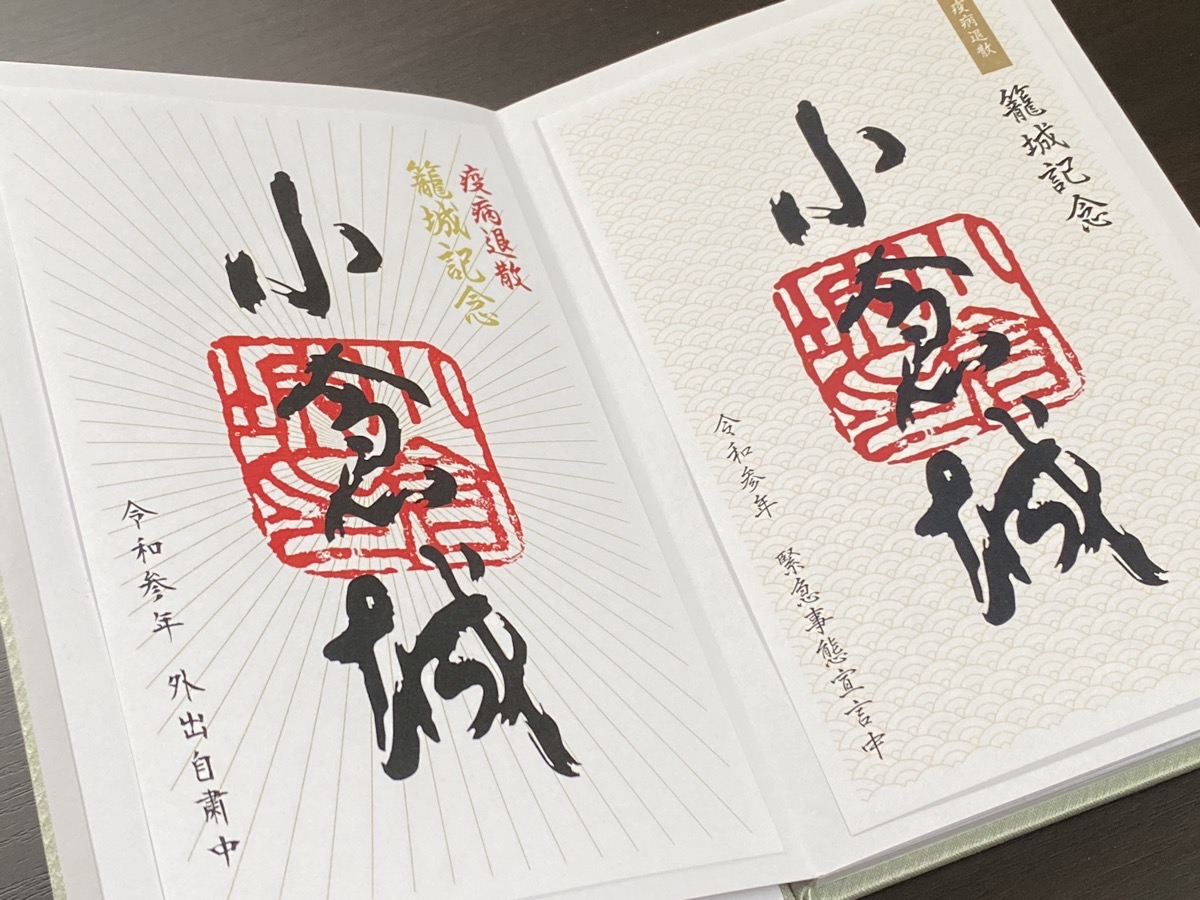 疫病退散
籠城記念
小倉城
令和参年 緊急事態宣言中
疫病退散
籠城記念
小倉城
令和参年 外出自粛中